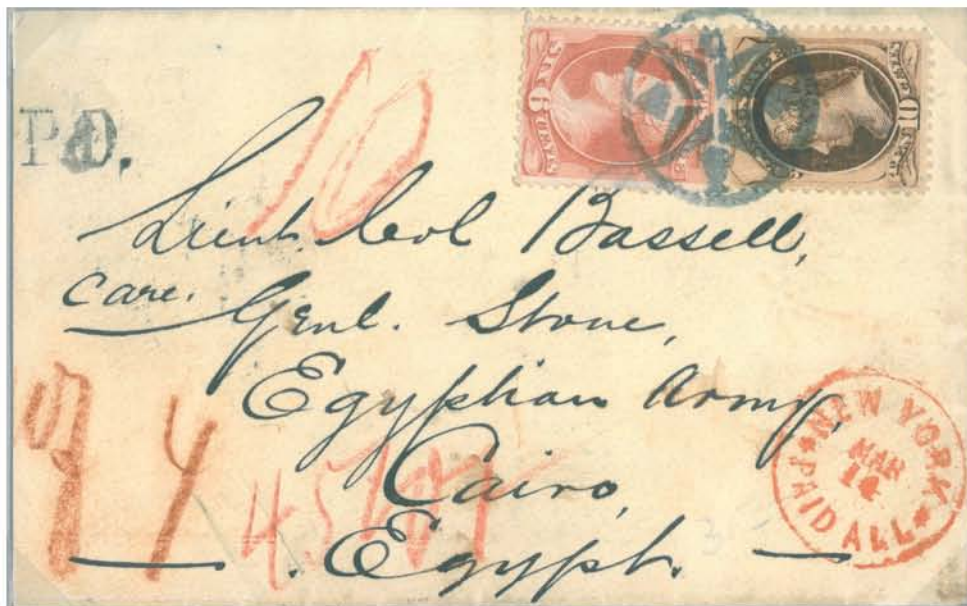 P.D.
10
SIX 6 CENTS
10
Lieut. Col Bassell,
care. Genl. Stone,
Egyptian Army,
Cairo,
Egypt.
NEW YORK
MAR
14
PAID ALL
4
45